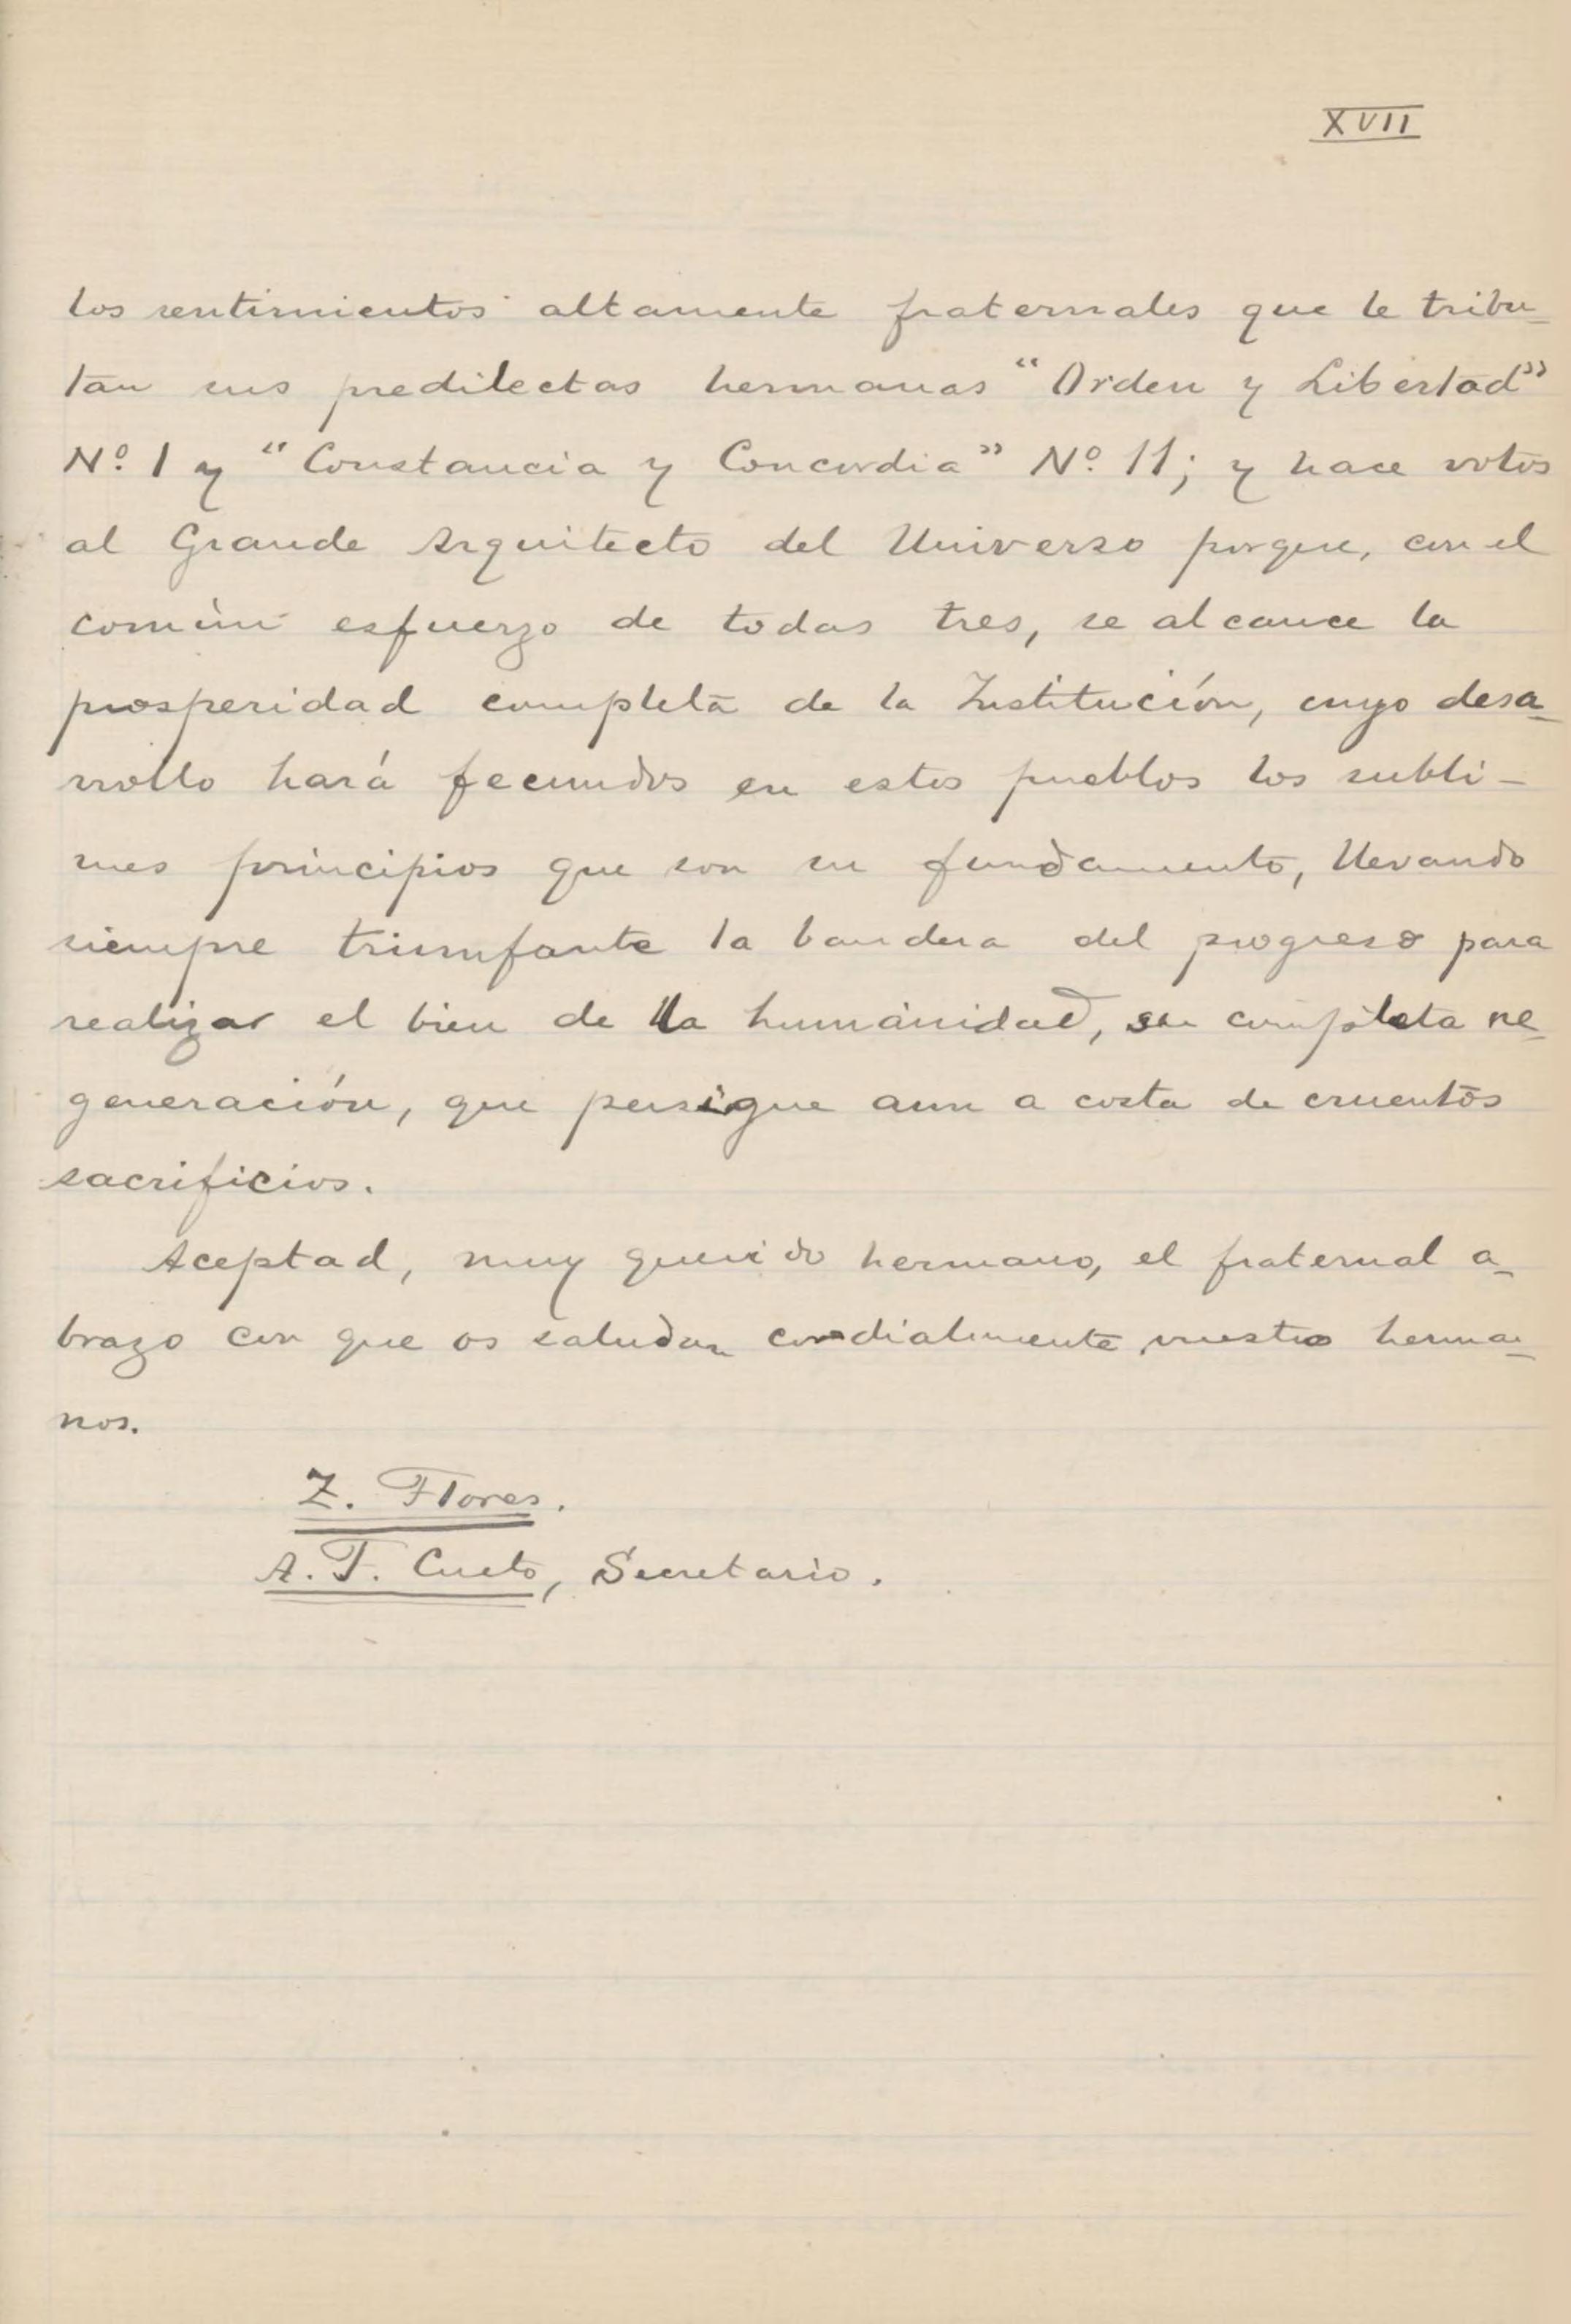 XVII
los sentimientos altamente fraternales que le tribu-
tan sus predilectas hermanas "Orden y Libertad"
Nº 1 y "Constancia y Concordia" Nº 11; y hace votos
al Grande Arquitecto del Universo porque, con el
común esfuerzo de todas tres, se alcance la
prosperidad completa de la Institución, cuyo desa-
rrollo hará fecundos en estos pueblos los subli-
mes principios que son su fundamento, llevando
siempre triunfante la bandera del progreso para
realizar el bien de la humanidad, su completa re-
generación, que persigue aun a costa de cruentos
sacrificios.
Aceptad, muy querido hermano, el fraternal a-
brazo con que os saludan cordialmente vuestros herma-
nos.
Z. Flores.
A. F. Cueto, Secretario.